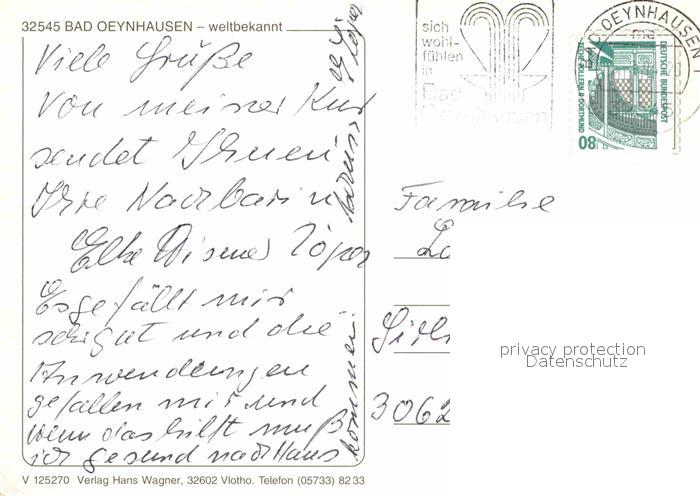 32545 BAD OEYNHAUSEN – weltbekannt
Viele Grüße
von meiner Kur
sendet Ihnen
Ihre Nachbarin
Elke
Es gefällt mir
sehr gut und die
Anwendungen
gefallen mir und
wenn das hilft muß
ich gesund nach Haus
kommen
sich
wohl-
fühlen
in
Bad
Oeynhausen
BAD OEYNHAUSEN
DEUTSCHE BUNDESPOST
ZECHE ZOLLERN II · DORTMUND
80
Familie
3062
privacy protection
Datenschutz
V 125270 Verlag Hans Wagner, 32602 Vlotho. Telefon (05733) 82 33